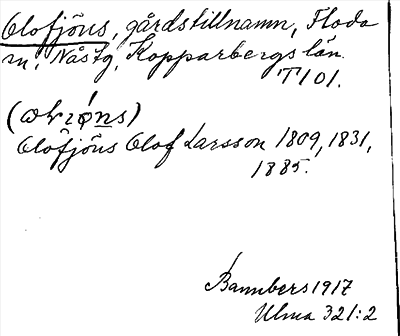 Olofjöns, gårdstillnamn, Floda
sn, Nåstg, Kopparbergs län.
T101.
Olofjöns Olof Larsson 1809, 1831,
1885.
Bannbers 1917
Ulma 321:2